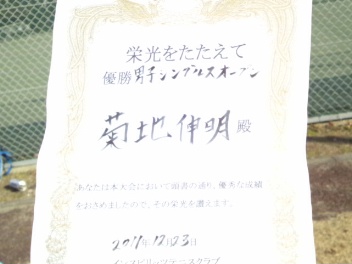 栄光をたたえて
優勝男子シングルスオープン
菊地伸明殿
あなたは本大会において頭書の通り、優秀な成績
をおさめましたので、その栄光を讃えます。
2011年12月23日
インスピリッツテニスクラブ